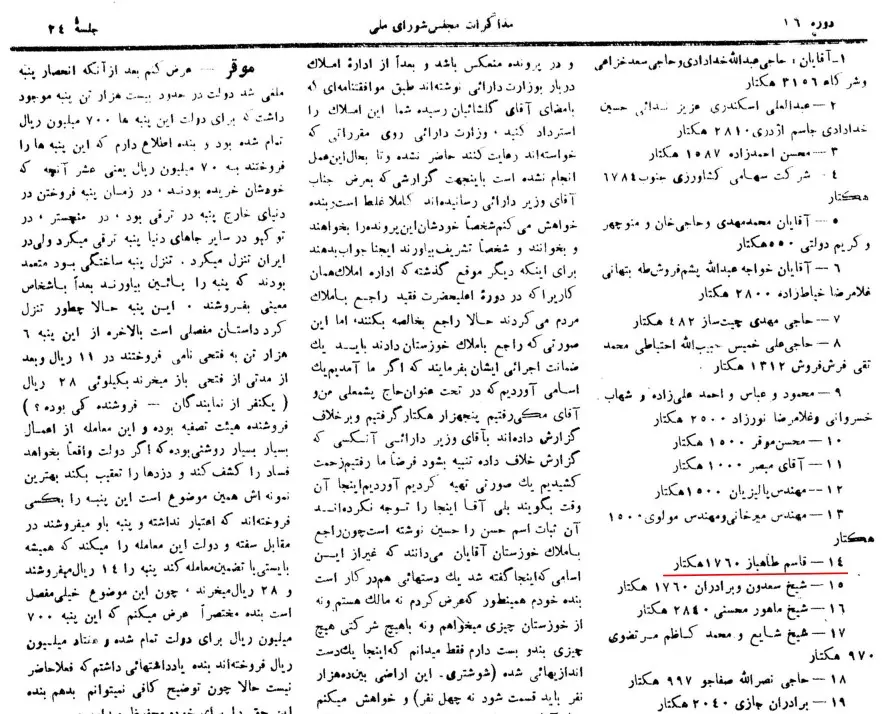 دوره ۱۶
مذاکرات مجلس شورای ملی
جلسهٔ ۲۴
۱ـ آقایان، حاجی عبدالله خدادادی و حاجی سعد خزاهی
و شرکاه ۳۱۵۶ هکتار
۲ – عبدالعلی اسکندری عزیز حسین
خدادادی جاسم ۲۸۱۰ هکتار
۳ – محسن احمدزاده ۱۵۸۷ هکتار
۴ – شرکت سهامی کشاورزی جنوب ۶۷۸۴
هکتار
۵ – آقایان محمدمهدی و حاجی خان و منوچهر
و کریم دولتی ۵۵۰ هکتار
۶ – آقایان خواجه عبدالله پشم‌فروش طه بتهانی
غلامرضا خیاط‌زاده ۲۸۰۰ هکتار
۷ – حاجی مهدی چیت‌ساز ۴۸۲ هکتار
۸ – حاجی علی خمیس حبیب‌الله احتیاطی محمد
تقی فرش‌فروش ۱۳۱۲ هکتار
۹ – محمود و عباس و احمد علی‌زاده و شهاب
خسروانی و غلامرضا نورزاد ۲۵۰۰ هکتار
۱۰ – محسن موقر ۱۵۰۰ هکتار
۱۱ – آقای مبصر ۱۰۰۰ هکتار
۱۲ – مهندس پالیزیان ۱۵۰۰ هکتار
۱۳ – مهندس میرخانی و مهندس مولوی ۱۵۰۰
هکتار
۱۴ – قاسم طاهباز ۱۷۶۰ هکتار
۱۵ – شیخ سعدون و برادران ۱۷۶۰ هکتار
۱۶ – شیخ ماهور محسنی ۲۸۴۰ هکتار
۱۷ – شیخ شایع و محمد کاظم مرتضوی
۹۷۰ هکتار
۱۸ – حاجی نصرالله صفاجو ۹۹۷ هکتار
۱۹ – برادران جازی ۲۰۴۰ هکتار
و در پرونده منعکس باشد و بعداً از ادارهٔ املاک
دربار بوزارت دارائی نوشته‌اند طبق موافقتنامه‌ای که
بامضای آقای گلشائیان رسیده شما این املاک را
استرداد کنید، وزارت دارائی روی مقرراتی که
خواسته‌اند رعایت کنند حاضر نشده و تا بحال این عمل
انجام نشده است باینجهت گزارشی که بعرض جناب
آقای وزیر دارائی رسانیده‌اند کاملا غلط است بنده
خواهش می‌کنم شخصاً خودشان این پرونده را بخواهند
و بخوانند و شخصاً تشریف بیاورند اینجا جواب بدهند
برای اینکه دیگر موقع گذشته که اداره املاک همان
کاریرا که در دورهٔ اعلیحضرت فقید راجع باملاک
مردم می‌کردند حالا راجع بخالصه بکنند، اما این
صورتی که راجع باملاک خوزستان دادند بایست یک
ضمانت اجرائی ایشان بفرمایند که اگر ما آمدیم یک
اسامی آوردیم که در تحت عنوان حاج پشمعلی من و
آقای مکی رفتیم پنجهزار هکتار گرفتیم و برخلاف
گزارش داده‌اند باآقای وزیر دارائی آنکسی که
گزارش خلاف داده تنبیه بشود فرضاً ما رفتیم زحمت
کشیدیم یک صورتی تهیه کردیم آوردیم اینجا آن
وقت بگویند بلی آقا اینجا را توجه نکرده‌اند
آن ثبات اسم حسن را حسین نوشته است چون راجع
باملاک خوزستان آقایان می‌دانند که غیر از این
اسامی که اینجا گفته شد یک دستهائی هم در کار است
بنده خودم همینطور که عرض کردم نه مالک هستم و نه
از خوزستان چیزی میخواهم و نه باهیچ شرکتی هیچ
چیزی بندو بست دارم فقط میدانم که اینجا یک دست
اندازیهائی شده (شوشتری. این اراضی بین ده هزار
نفر باید قسمت شود نه چهل نفر) و خواهش میکنم
موقر – عرض کنم بعد از آنکه انحصار پنبه
ملغی شد دولت در حدود بیست هزار تن پنبه موجود
داشت که برای دولت این پنبه ها ۷۰۰ میلیون ریال
تمام شده بود و بنده اطلاع دارم که این پنبه ها را
فروختند به ۷۰ میلیون ریال یعنی عشر آنچه که
خودشان خریده بودند، در زمان پنبه فروختن در
دنیای خارج پنبه در ترقی بود، در منچستر، در
توکیو در سایر جاهای دنیا پنبه ترقی میکرد ولی در
ایران تنزل میکرد. تنزل پنبه ساختگی بود متعمد
بودند که پنبه را پائین بیاورند بعداً باشخاص
معینی بفروشند، این پنبه حالا چطور تنزل
کرد داستان مفصلی است بالاخره از این پنبه ۶
هزار تن به فتحی نامی فروختند در ۱۱ ریال و بعد
از مدتی از فتحی باز میخرند بکیلوئی ۲۸ ریال
(یکنفر از نمایندگان – فروشنده کی بوده؟)
فروشنده هیئت تصفیه بوده و این معامله از اعمال
بسیار بسیار روشنی بوده که اگر دولت واقعاً بخواهد
فساد را کشف کند و دزدها را تعقیب بکند بهترین
نمونه اش همین موضوع است این پنبه را بکسی
فروخته‌اند که اعتبار نداشته و پنبه باو میفروشند در
مقابل سفته و دولت این معامله را میکند که همیشه
بایستی با تضمین معامله کند پنبه را ۱۴ ریال میفروشند
و ۲۸ ریال میخرند، چون این موضوع خیلی مفصل
است بنده مختصراً عرض میکنم که این پنبه ۷۰۰
میلیون ریال برای دولت تمام شده و هفتاد میلیون
ریال فروخته‌اند بنده یادداشتهائی داشتم که فعلا حاضر
نیست حالا چون توضیح کافی نمیتوانم بدهم بنده